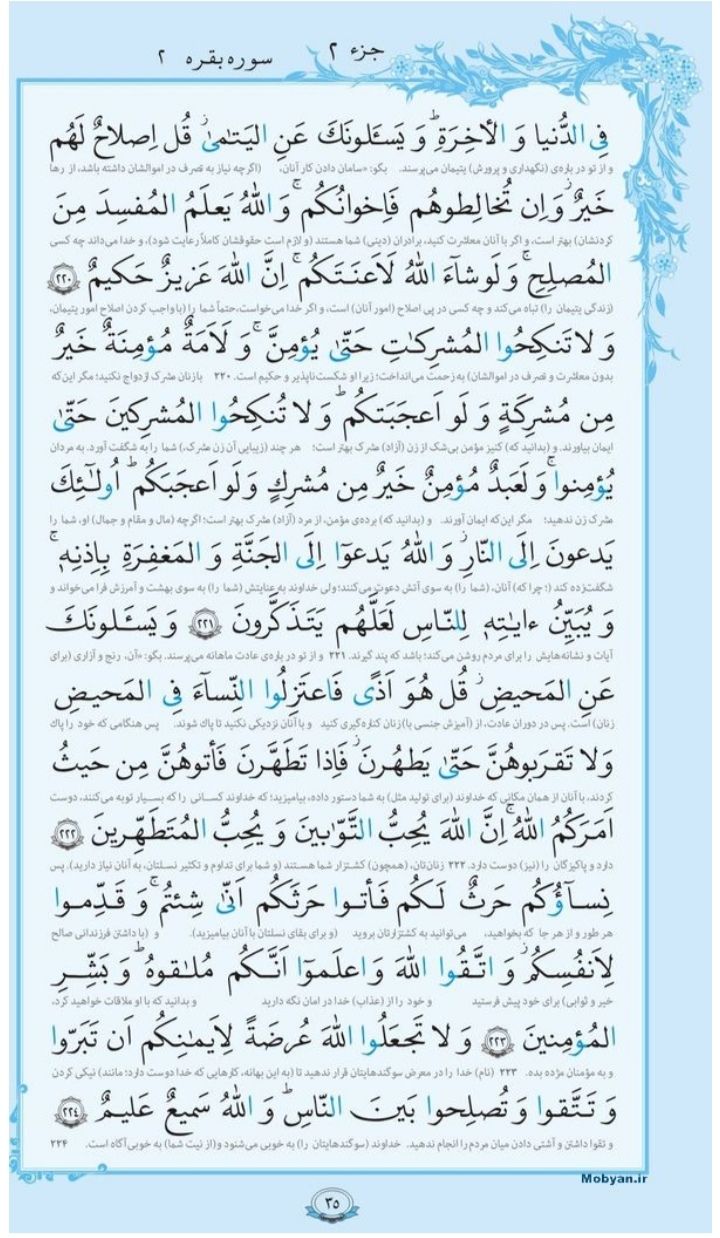 جزء ۲
سوره بقره ۲
فِی الدُّنیا وَ الأخِرَةِ ۗ وَ یَسـَٔلونَکَ عَنِ الیَتـٰمیٰ ۖ قُل اِصلاحٌ لَهُم
و از تو در باره‌ی (نگهداری و پرورش) یتیمان می‌پرسند. بگو: «سامان دادن کار آنان، (اگرچه نیاز به تصرف در اموالشان داشته باشد، از رها
خَیرٌ ۖ وَ اِن تُخالِطوهُم فَاِخوانُکُم ۚ وَ اللّٰهُ یَعلَمُ المُفسِدَ مِنَ
کردنشان) بهتر است، و اگر با آنان معاشرت کنید، برادران (دینی) شما هستند (و لازم است حقوقشان کاملاً رعایت شود)، و خدا می‌داند چه کسی
المُصلِحِ ۚ وَ لَو شآءَ اللّٰهُ لَاَعنَتَکُم ۚ اِنَّ اللّٰهَ عَزیزٌ حَکیمٌ ﴿۲۲۰﴾
(زندگی یتیمان را) تباه می‌کند و چه کسی در پی اصلاح (امور آنان) است، و اگر خدا می‌خواست، حتماً شما را (با واجب کردن اصلاح امور یتیمان،
وَ لا تَنکِحُوا المُشرِکـٰتِ حَتّیٰ یُؤمِنَّ ۚ وَ لَاَمَةٌ مُؤمِنَةٌ خَیرٌ
بدون معاشرت و تصرف در اموالشان) به زحمت می‌انداخت؛ زیرا او شکست‌ناپذیر و حکیم است. ۲۲۰ با زنان مشرک ازدواج نکنید؛ مگر این‌که
مِن مُشرِکَةٍ وَ لَو اَعجَبَتکُم ۗ وَ لا تُنکِحُوا المُشرِکینَ حَتّیٰ
ایمان بیاورند. و (بدانید که) کنیز مؤمن بی‌شک از زن (آزاد) مشرک بهتر است؛ هر چند (زیبایی آن زن مشرک،) شما را به شگفت آورد. به مردان
یُؤمِنوا ۚ وَ لَعَبدٌ مُؤمِنٌ خَیرٌ مِن مُشرِکٍ وَ لَو اَعجَبَکُم ۗ اُولـٰٓئِکَ
مشرک زن ندهید؛ مگر این‌که ایمان آورند. و (بدانید که) برده‌ی مؤمن، از مرد (آزاد) مشرک بهتر است؛ اگرچه (مال و مقام و جمال) او، شما را
یَدعونَ اِلَی النّارِ ۖ وَ اللّٰهُ یَدعوٓا اِلَی الجَنَّةِ وَ المَغفِرَةِ بِاِذنِهٖ ۚ
شگفت‌زده کند (؛ چرا که) آنان، (شما را) به سوی آتش دعوت می‌کنند؛ ولی خداوند به عنایتش (شما را) به سوی بهشت و آمرزش فرا می‌خواند و
وَ یُبَیِّنُ ءایـٰتِهٖ لِلنّاسِ لَعَلَّهُم یَتَذَکَّرونَ ﴿۲۲۱﴾ وَ یَسـَٔلونَکَ
آیات و نشانه‌هایش را برای مردم روشن می‌کند؛ باشد که پند گیرند. ۲۲۱ و از تو در باره‌ی عادت ماهانه می‌پرسند. بگو: «آن، رنج و آزاری (برای
عَنِ المَحیضِ ۖ قُل هُوَ اَذًی فَاعتَزِلُوا النِّسآءَ فِی المَحیضِ
زنان) است. پس در دوران عادت، از (آمیزش جنسی با) زنان کناره‌گیری کنید و با آنان نزدیکی نکنید تا پاک شوند. پس هنگامی که خود را پاک
وَ لا تَقرَبوهُنَّ حَتّیٰ یَطهُرنَ ۖ فَاِذا تَطَهَّرنَ فَأتوهُنَّ مِن حَیثُ
کردند، با آنان از همان مکانی که خداوند (برای تولید مثل) به شما دستور داده، بیامیزید؛ که خداوند کسانی را که بسیار توبه می‌کنند، دوست
اَمَرَکُمُ اللّٰهُ ۚ اِنَّ اللّٰهَ یُحِبُّ التَّوّابینَ وَ یُحِبُّ المُتَطَهِّرینَ ﴿۲۲۲﴾
دارد و پاکیزگان را (نیز) دوست دارد. ۲۲۲ زنان‌تان، (همچون) کشتزار شما هستند (و شما برای تداوم و تکثیر نسلتان، به آنان نیاز دارید). پس
نِسآؤُکُم حَرثٌ لَکُم فَأتوا حَرثَکُم اَنّیٰ شِئتُم ۖ وَ قَدِّموا
هر طور و از هر جا که بخواهید، می‌توانید به کشتزارتان بروید (و برای بقای نسلتان با آنان بیامیزید). و (با داشتن فرزندانی صالح
لِاَنفُسِکُم ۚ وَ اتَّقُوا اللّٰهَ وَ اعلَموٓا اَنَّکُم مُلـٰقوهُ ۗ وَ بَشِّرِ
خیر و ثوابی) برای خود پیش فرستید و خود را از (عذاب) خدا در امان نگه دارید و بدانید که با او ملاقات خواهید کرد،
المُؤمِنینَ ﴿۲۲۳﴾ وَ لا تَجعَلُوا اللّٰهَ عُرضَةً لِاَیمـٰنِکُم اَن تَبَرّوا
و به مؤمنان مژده بده. ۲۲۳ (نام) خدا را در معرض سوگندهایتان قرار ندهید تا (به این بهانه، کارهایی که خدا دوست دارد؛ مانند) نیکی کردن
وَ تَتَّقوا وَ تُصلِحوا بَینَ النّاسِ ۗ وَ اللّٰهُ سَمیعٌ عَلیمٌ ﴿۲۲۴﴾
و تقوا داشتن و آشتی دادن میان مردم را انجام ندهید. خداوند (سوگندهایتان را) به خوبی می‌شنود و (از نیت شما) به خوبی آگاه است. ۲۲۴
Mobyan.ir
۳۵